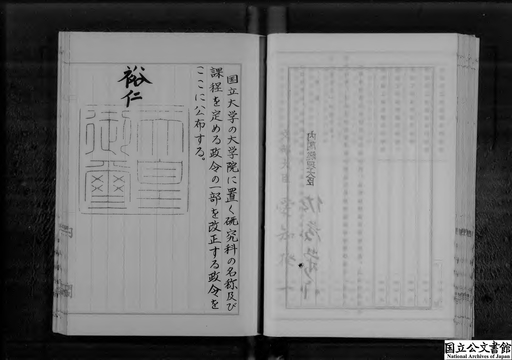 国立大学の大学院に置く研究科の名称及び
課程を定める政令の一部を改正する政令を
ここに公布する。
裕仁
天皇
御璽
内閣総理大臣
国立公文書館
National Archives of Japan